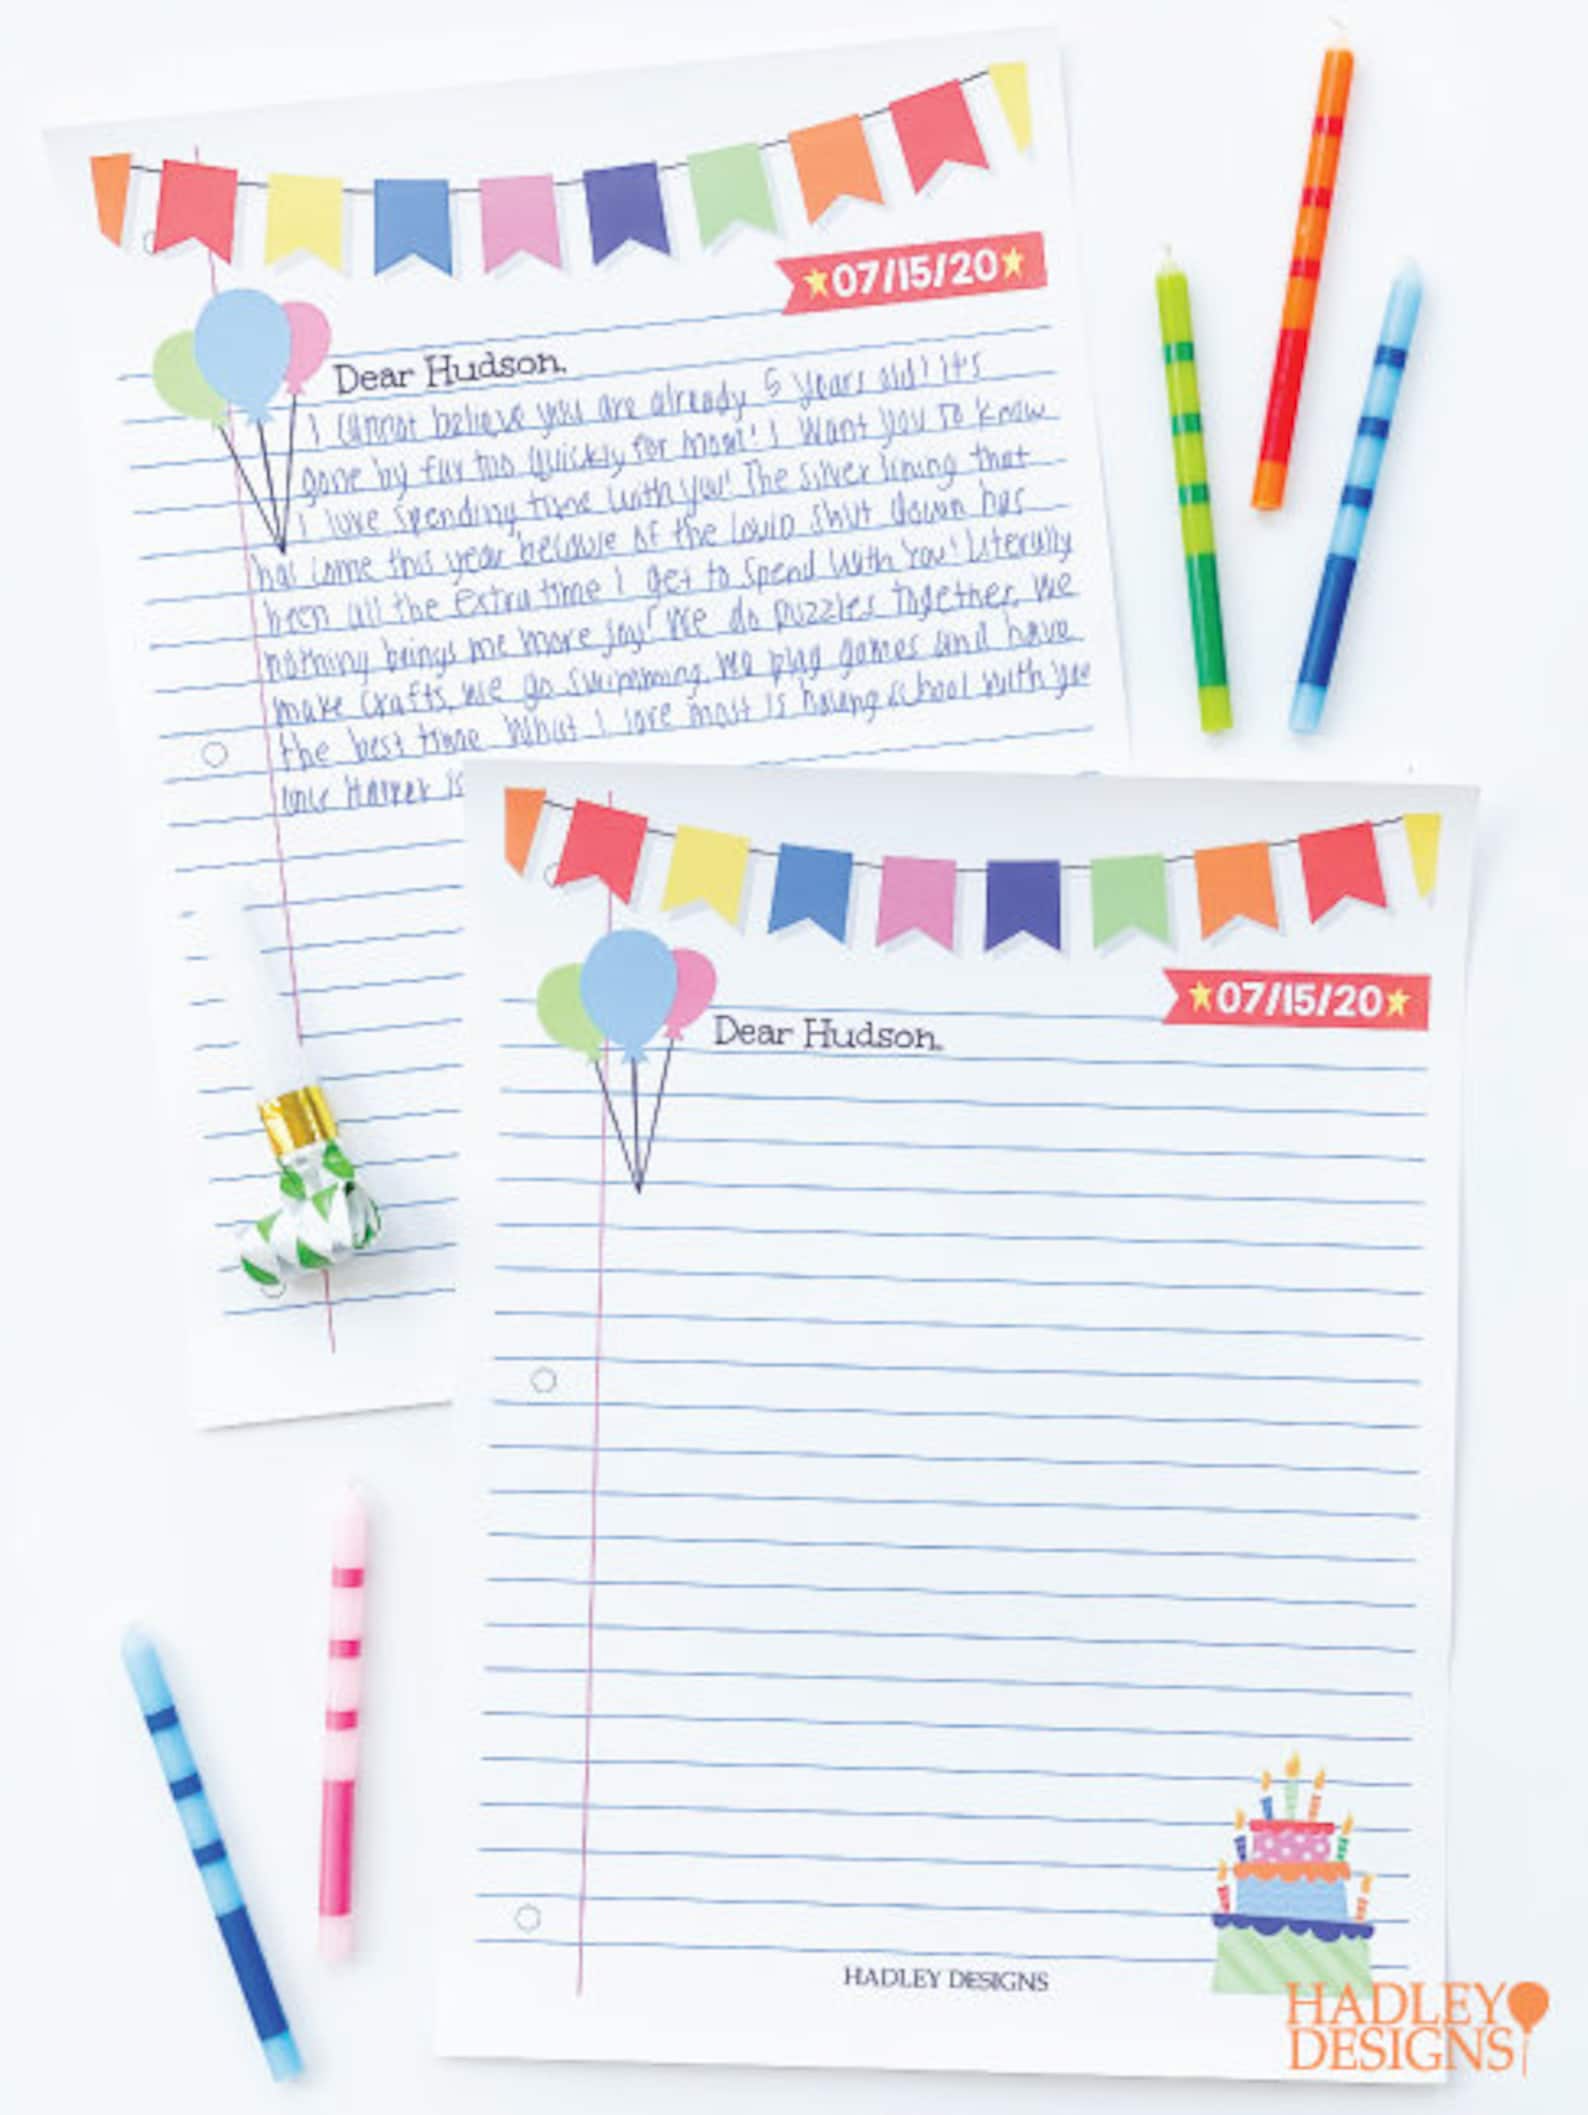 07/15/20
Dear Hudson,
I cannot believe you are already 5 years old! It's
gone by far too quickly for mom! I want you to know
I love spending time with you! The silver lining that
has come this year because of the COVID shut down has
been all the extra time I get to spend with you! Literally
nothing brings me more joy! We do puzzles together, we
make crafts, we go swimming, we play games and have
the best time. What I love most is having school with you
once Harper is
07/15/20
Dear Hudson,
HADLEY DESIGNS
HADLEY
DESIGNS